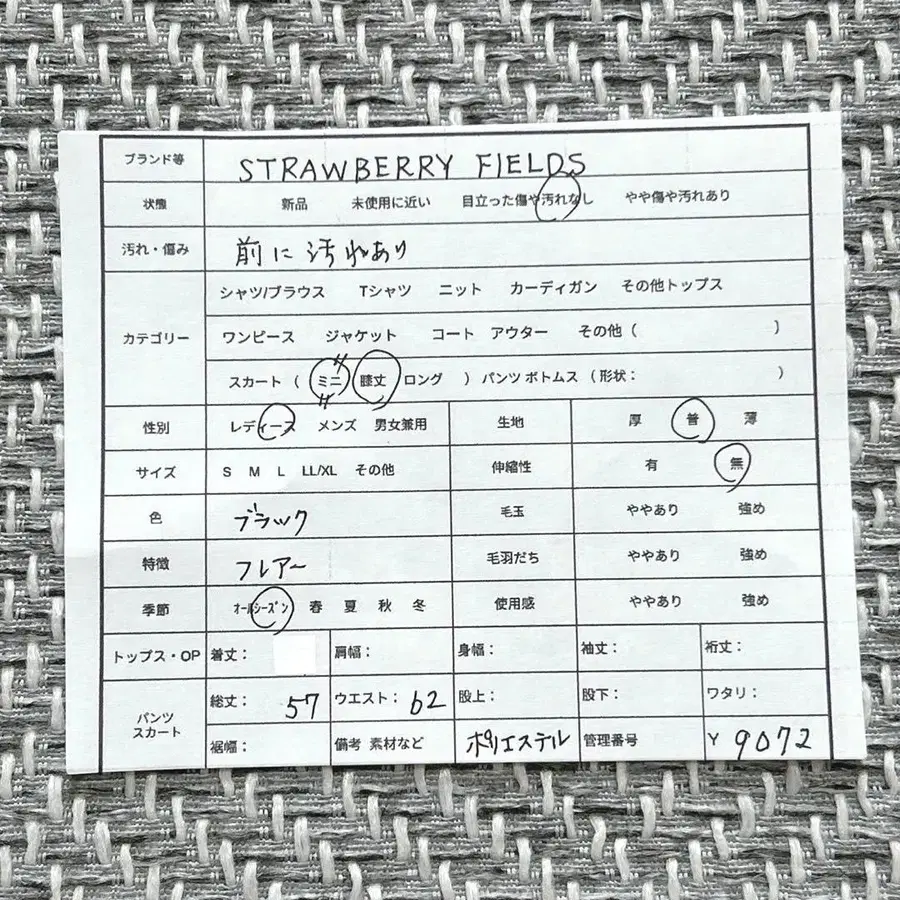 ブランド等 STRAWBERRY FIELDS
状態 新品 未使用に近い 目立った傷や汚れなし やや傷や汚れあり
汚れ・傷み 前に汚れあり
カテゴリー
シャツ/ブラウス Tシャツ ニット カーディガン その他トップス
ワンピース ジャケット コート アウター その他( )
スカート( ミニ 膝丈 ロング )パンツ ボトムス(形状: )
性別 レディース メンズ 男女兼用 生地 厚 普 薄
サイズ S M L LL/XL その他 伸縮性 有 無
色 ブラック 毛玉 ややあり 強め
特徴 フレアー 毛羽だち ややあり 強め
季節 オールシーズン 春 夏 秋 冬 使用感 ややあり 強め
トップス・OP 着丈: 肩幅: 身幅: 袖丈: 裄丈:
パンツ
スカート
総丈: 57 ウエスト: 62 股上: 股下: ワタリ:
裾幅: 備考 素材など ポリエステル 管理番号 Y 9072